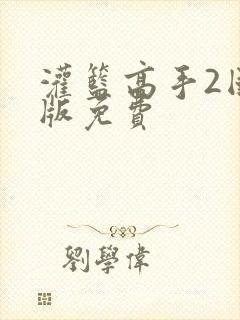 灌籃高手2國
版免費
劉學偉